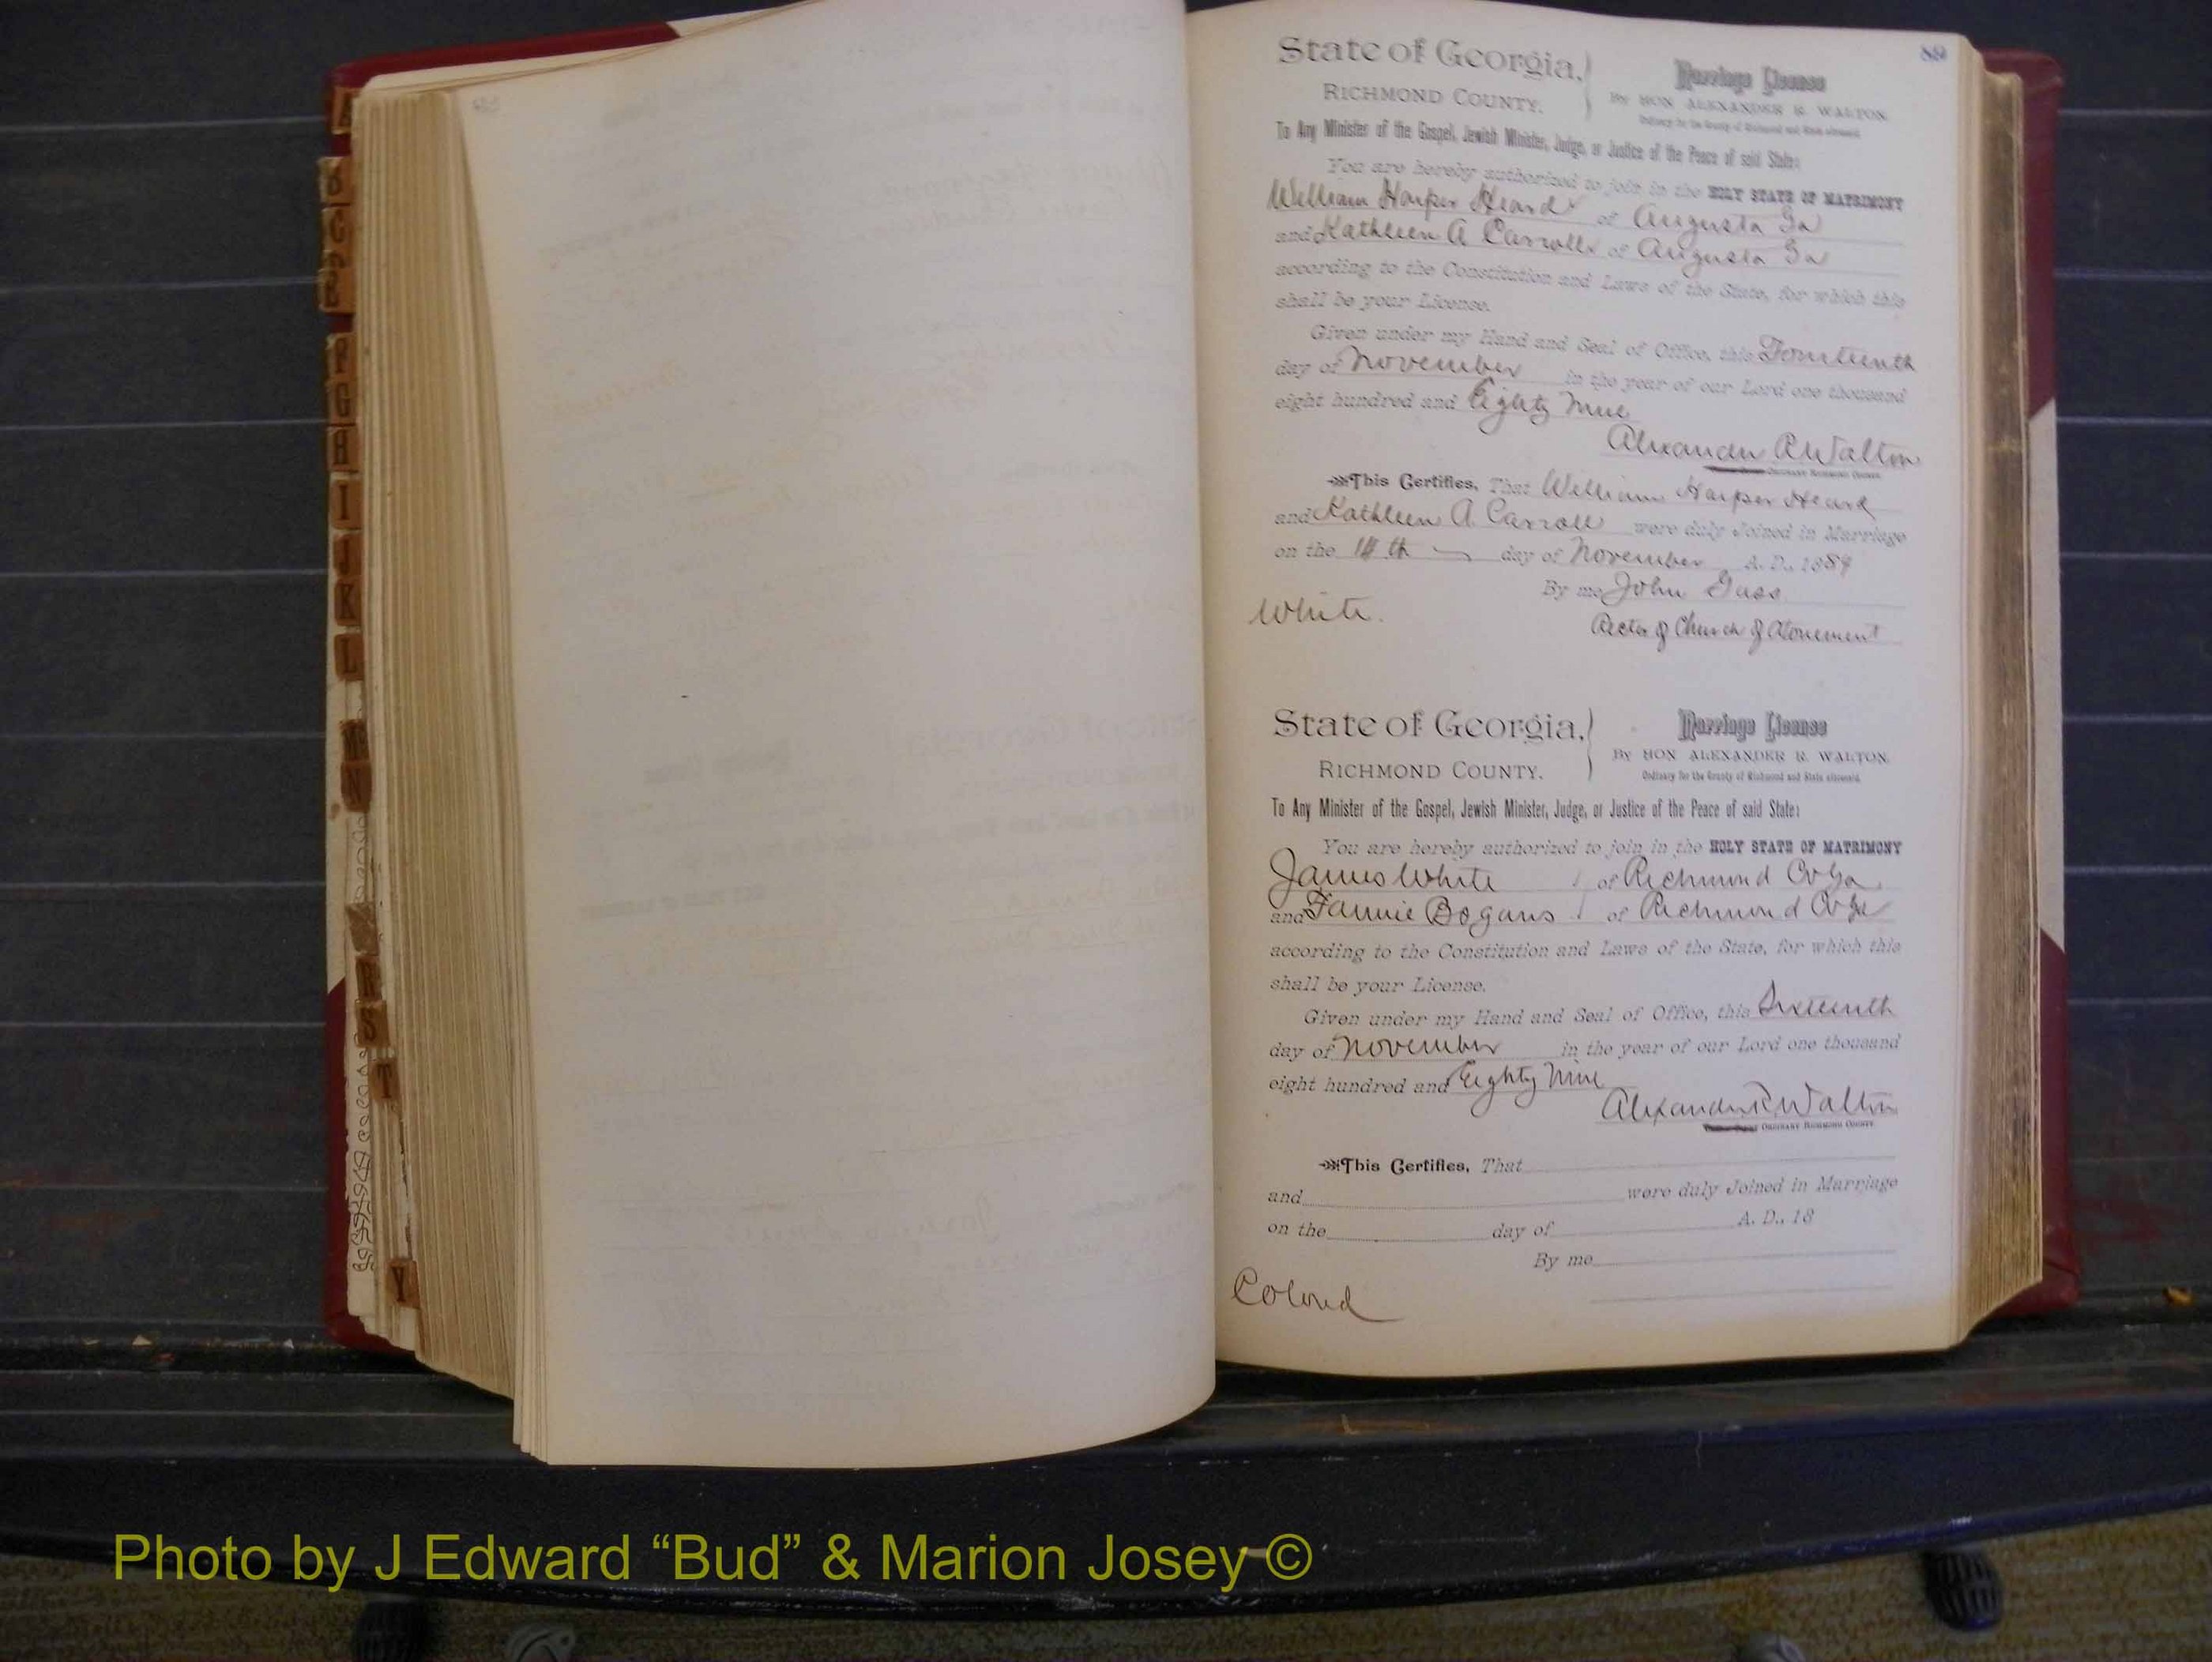 89
State of Georgia,
Marriage License
RICHMOND COUNTY.
By HON ALEXANDER R. WALTON.
Ordinary for the County of Richmond and State aforesaid.
To Any Minister of the Gospel, Jewish Minister, Judge, or Justice of the Peace of said State:
You are hereby authorized to join in the HOLY STATE OF MATRIMONY
William Harper Heard of Augusta Ga
and Kathleen A Carroll of Augusta Ga
according to the Constitution and Laws of the State, for which this
shall be your License.
Given under my Hand and Seal of Office, this Fourteenth
day of November in the year of our Lord one thousand
eight hundred and Eighty Nine
Alexander R Walton
ORDINARY RICHMOND COUNTY.
This Certifies, That William Harper Heard
and Kathleen A. Carroll were duly Joined in Marriage
on the 14th day of November A. D., 1889
By me John Gass
White.
Rector of Church of Atonement
State of Georgia,
Marriage License
RICHMOND COUNTY.
By HON ALEXANDER R. WALTON.
Ordinary for the County of Richmond and State aforesaid.
To Any Minister of the Gospel, Jewish Minister, Judge, or Justice of the Peace of said State:
You are hereby authorized to join in the HOLY STATE OF MATRIMONY
James White of Richmond Co Ga
and Fannie Bogans of Richmond Co Ga
according to the Constitution and Laws of the State, for which this
shall be your License.
Given under my Hand and Seal of Office, this Sixteenth
day of November in the year of our Lord one thousand
eight hundred and Eighty Nine
Alexander R Walton
ORDINARY RICHMOND COUNTY.
This Certifies, That
and were duly Joined in Marriage
on the day of A. D., 18
By me
Colored
G
H
I
J
K
L
N
R
S
T
Y
Photo by J Edward “Bud” & Marion Josey ©